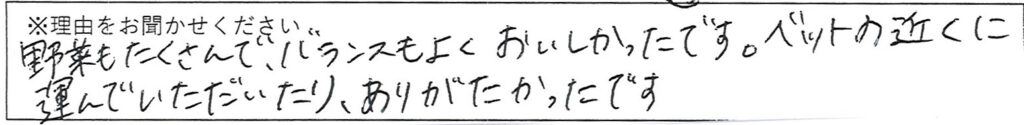 ※理由をお聞かせください。
野菜もたくさんで、バランスもよく おいしかったです。ベットの近くに
運んでいただいたり、ありがたかったです